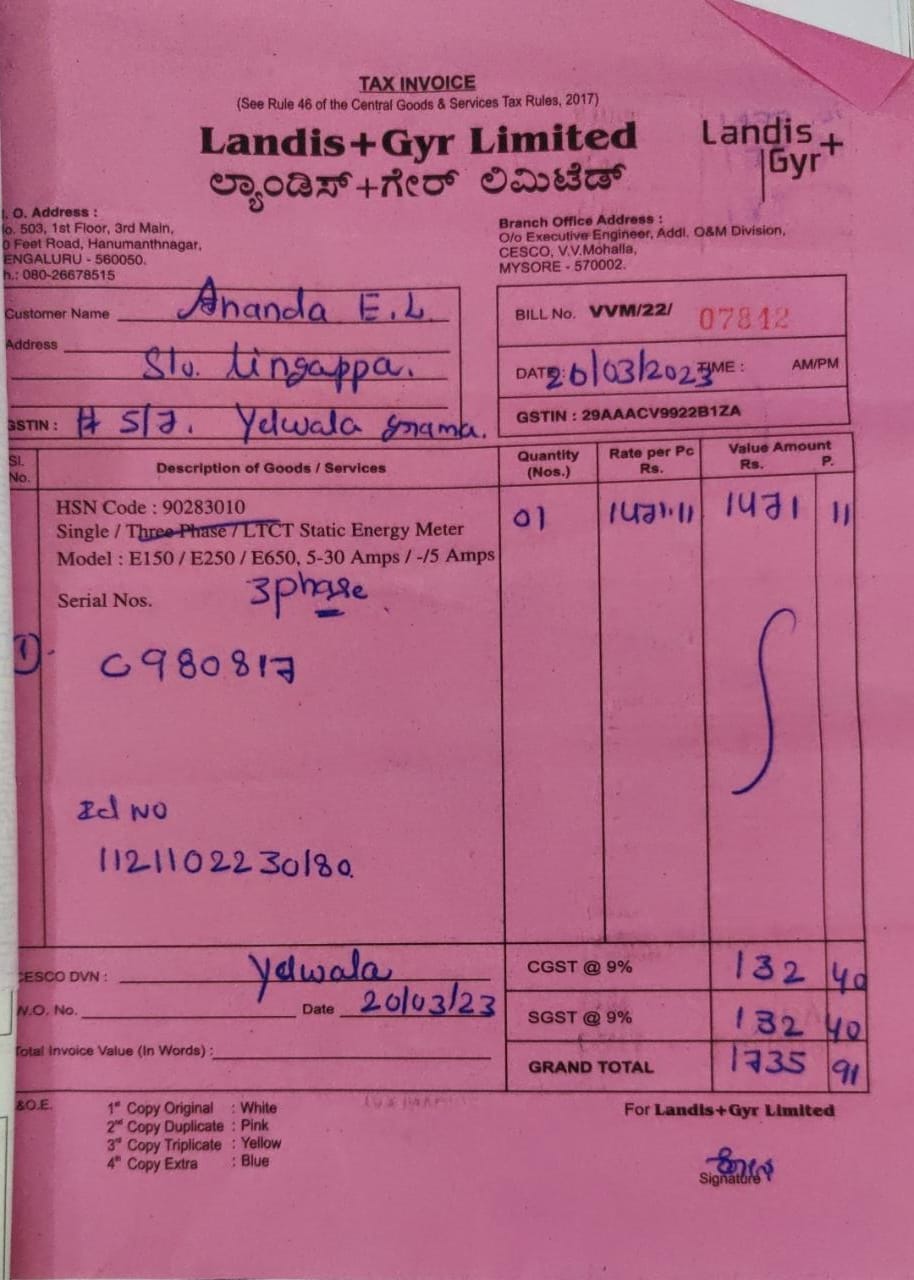 TAX INVOICE
(See Rule 46 of the Central Goods & Services Tax Rules, 2017)
Landis+Gyr Limited
ಲ್ಯಾಂಡಿಸ್+ಗೇರ್ ಲಿಮಿಟೆಡ್
Landis+
Gyr
. O. Address :
o. 503, 1st Floor, 3rd Main,
0 Feet Road, Hanumanthnagar,
ENGALURU - 560050.
h.: 080-26678515
Branch Office Address :
O/o Executive Engineer, Addl. O&M Division,
CESCO, V.V.Mohalla,
MYSORE - 570002.
Customer Name Ananda E.L.
Address
S/o. Lingappa.
GSTIN : # 5/7. Yelwala grama.
BILL No. VVM/22/ 07842
DATE: 20/03/2023 TIME : AM/PM
GSTIN : 29AAACV9922B1ZA
Sl. No. Description of Goods / Services Quantity (Nos.) Rate per Pc Rs. Value Amount Rs. P.
HSN Code : 90283010 01 1471.11 1471 11
Single / Three Phase / LTCT Static Energy Meter
Model : E150 / E250 / E650, 5-30 Amps / -/5 Amps
Serial Nos. 3 phase
1) C980817
Id NO
1121102230180.
CESCO DVN : Yelwala
W.O. No. Date 20/03/23
Total Invoice Value (In Words) :
CGST @ 9% 132 40
SGST @ 9% 132 40
GRAND TOTAL 1735 91
&O.E.
1st Copy Original : White
2nd Copy Duplicate : Pink
3rd Copy Triplicate : Yellow
4th Copy Extra : Blue
For Landis+Gyr Limited
Signature